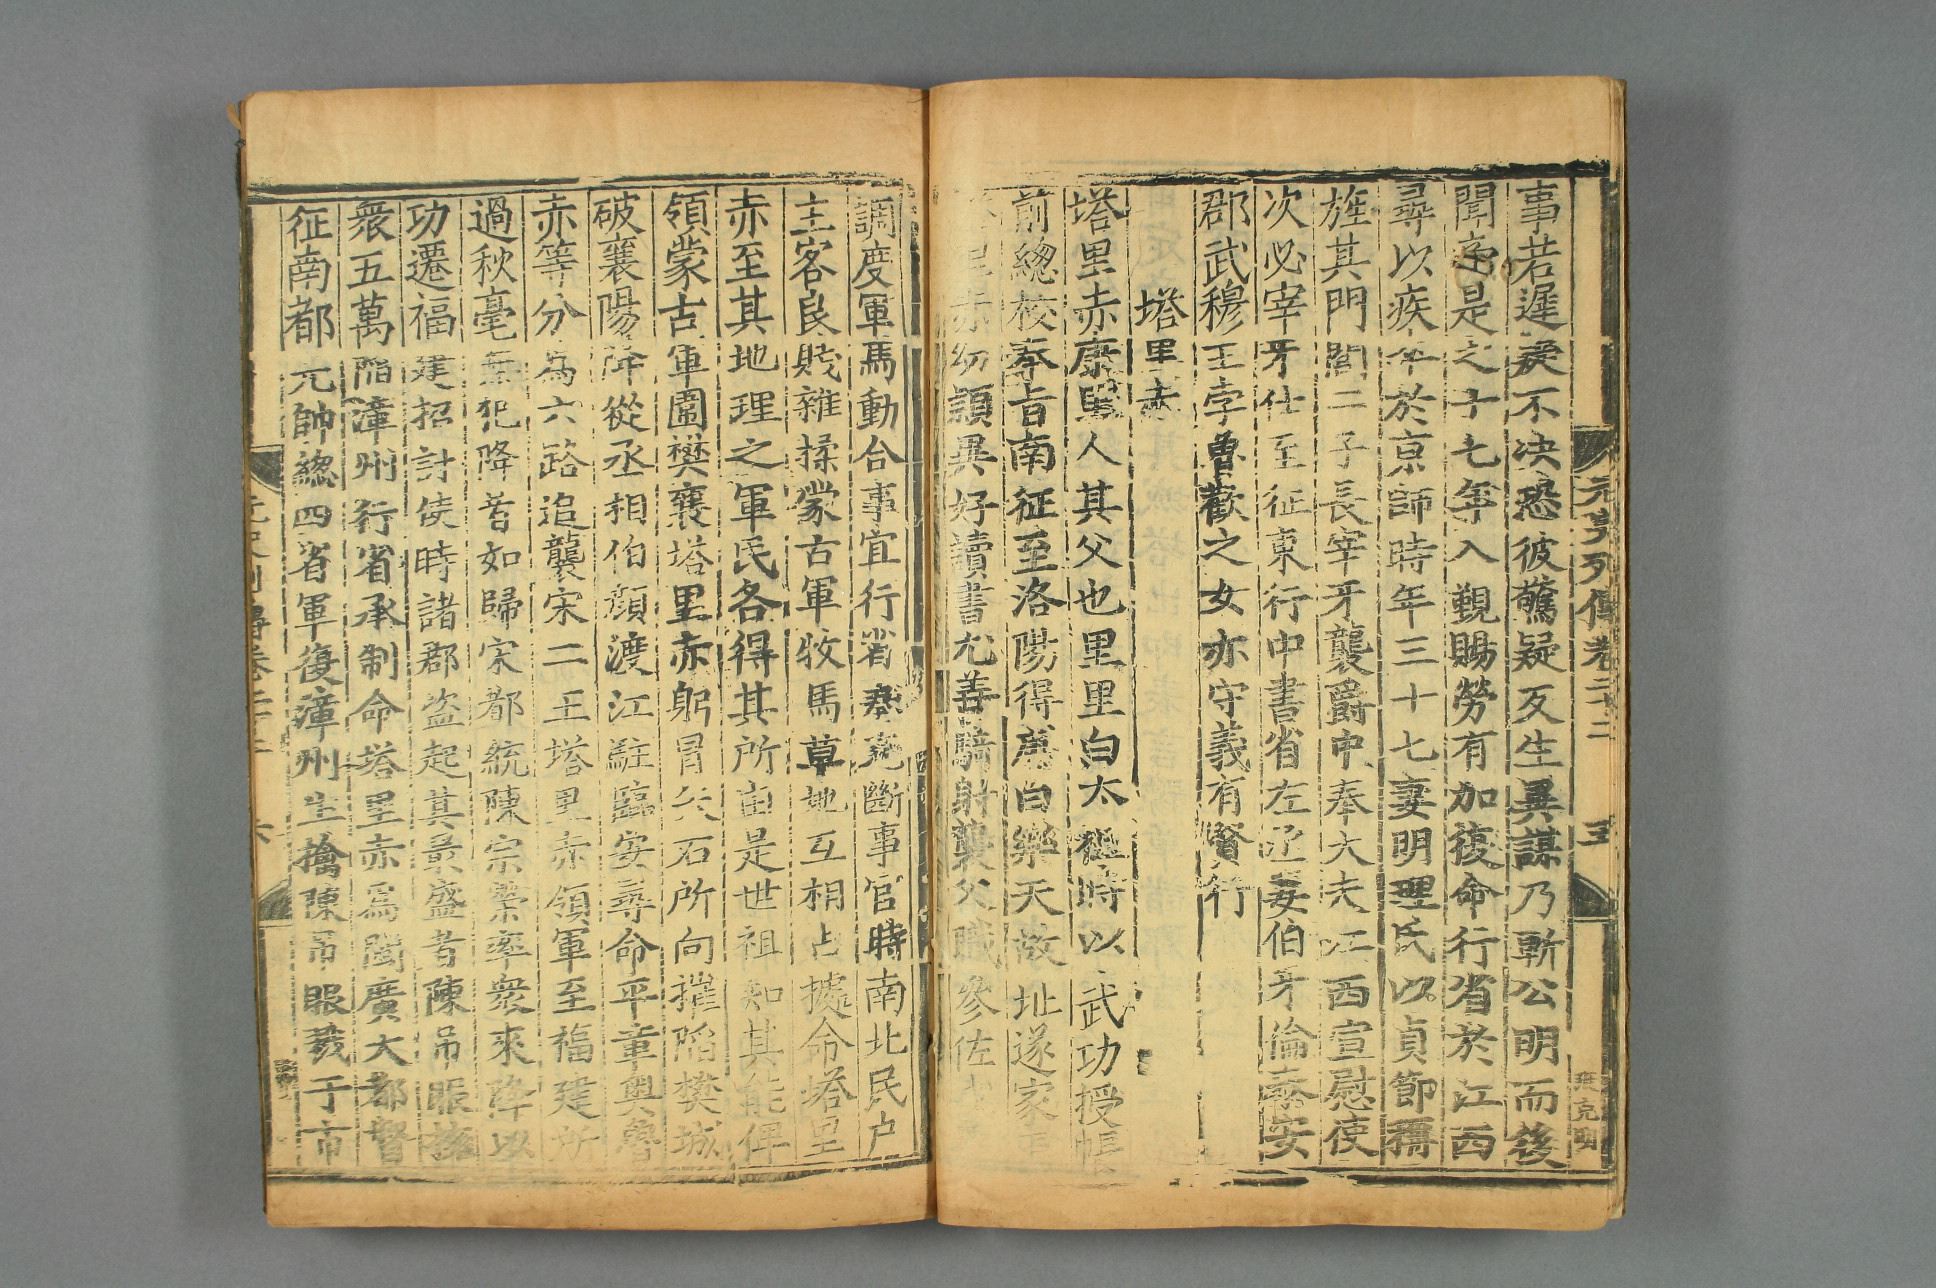 事若遲疑不決恐彼驚疑反生異謀乃斬公明而後
聞宰是之十七年入覲賜勞有加復命行省於江西
尋以疾卒於京師時年三十七妻明理氏以貞節稱
旌其門閭二子長宰牙襲爵中奉大夫江西宣慰使
次必宰牙仕至征東行中書省左丞妾伯牙倫泰安
郡武穆王孛魯歡之女亦守義有賢行
塔里赤
塔里赤康里人其父也里里白太祖時以武功授帳
前總校奉旨南征至洛陽得白樂天故址遂家焉
里赤幼穎異好讀書尤善騎射襲父職參佐戎
調度軍馬動合事宜行省奏充斷事官時南北民户
主客良賤雜揉蒙古軍牧馬草地互相占據命塔里
赤至其地理之軍民各得其所由是世祖知其能俾
領蒙古軍圍樊襄塔里赤躬冒矢石所向摧陷樊城
破襄陽降從丞相伯顏渡江駐臨安尋命平章奧魯
赤等分為六路追襲宋二王塔里赤領軍至福建所
過秋毫無犯降者如歸宋都統陳宗榮率衆來降以
功遷福建招討使時諸郡盜起其最盛者陳吊眼擁
衆五萬陷漳州行省承制命塔里赤爲閩廣大都督
征南都元帥總四省軍復漳州生擒陳吊眼戮于市
元史列傳卷二十二
五
元史列傳卷二十二
六